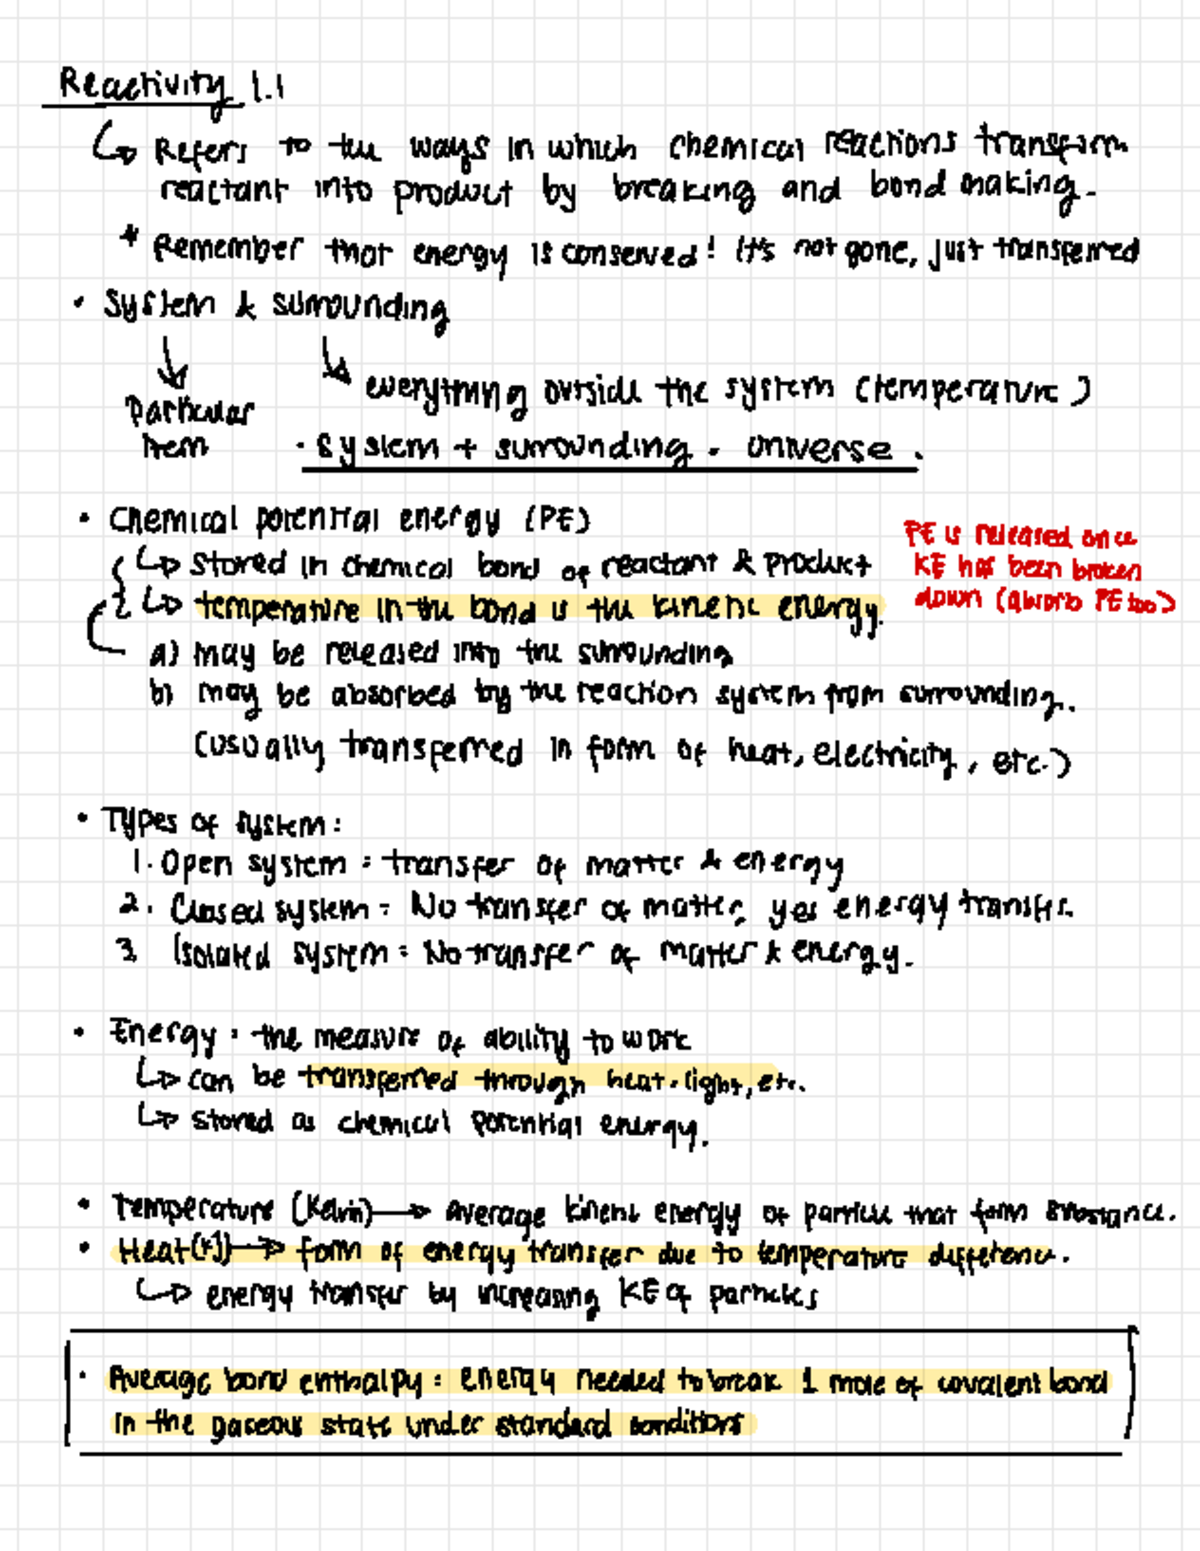 Reactivity 1.1
↳ Refers to the ways in which chemical reactions transform
reactant into product by breaking and bond making.
* Remember that energy is conserved! It's not gone, just transferred
• System & surrounding
everything outside the system (temperature)
Particular
item
• System + surrounding = universe.
• Chemical potential energy (PE)
↳ stored in chemical bond of reactant & product
↳ temperature in the bond is the kinetic energy.
PE is released once
KE has been broken
down (absorb PE too)
a) may be released into the surrounding
b) may be absorbed by the reaction system from surrounding.
(usually transferred in form of heat, electricity, etc.)
• Types of system:
1. Open system = transfer of matter & energy
2. Closed system = No transfer of matter, yes energy transfer.
3 Isolated system = No transfer of matter & energy.
• Energy: the measure of ability to work
↳ can be transferred through heat, light, etc.
↳ stored as chemical potential energy.
• Temperature (Kelvin) → Average kinetic energy of particle that form substance.
• Heat (KJ) → form of energy transfer due to temperature difference.
↳ energy transfer by increasing KE of particles
• Average bond enthalpy: energy needed to break 1 mole of covalent bond
in the gaseous state under standard conditions